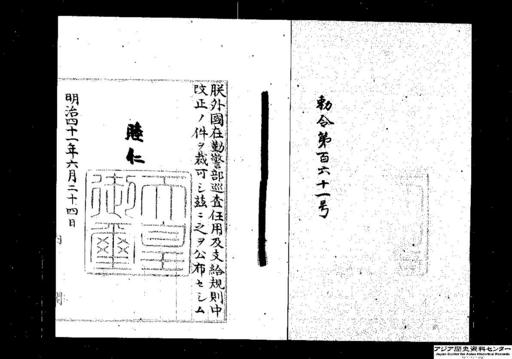 勅令第百六十一号
朕外國在勤警部巡査任用及支給規則中
改正ノ件ヲ裁可シ玆ニ之ヲ公布セシム
睦仁
天皇御璽
明治四十一年六月二十四日
内閣
アジア歴史資料センター
Japan Center for Asian Historical Records